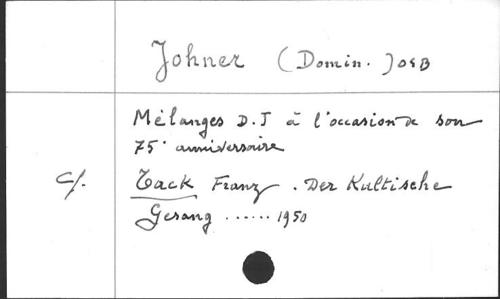 Johner (Domin.) OSB
Mélanges D.J à l'occasion de son
75e anniversaire
Cf. Tack Franz. Der Kultische
Gesang ...... 1950